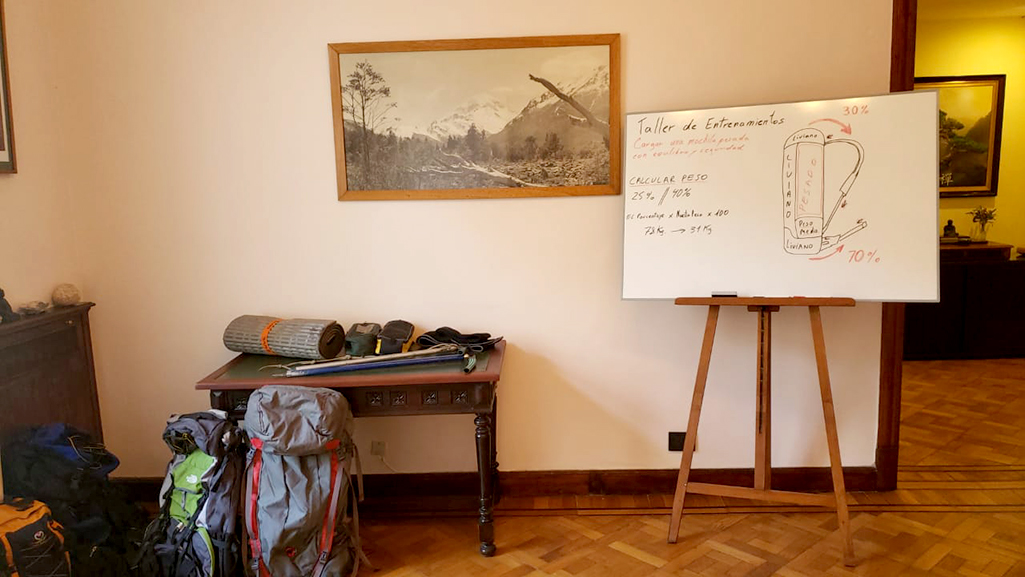 Taller de Entrenamientos
Cargar una mochila pesada
con equilibrio y seguridad
CALCULAR PESO
25% // 40%
x Mochilero x 100
Kg → 31 Kg
30%
Liviano
LIVIANO
PESADO
Peso
Medio
LIVIANO
70%